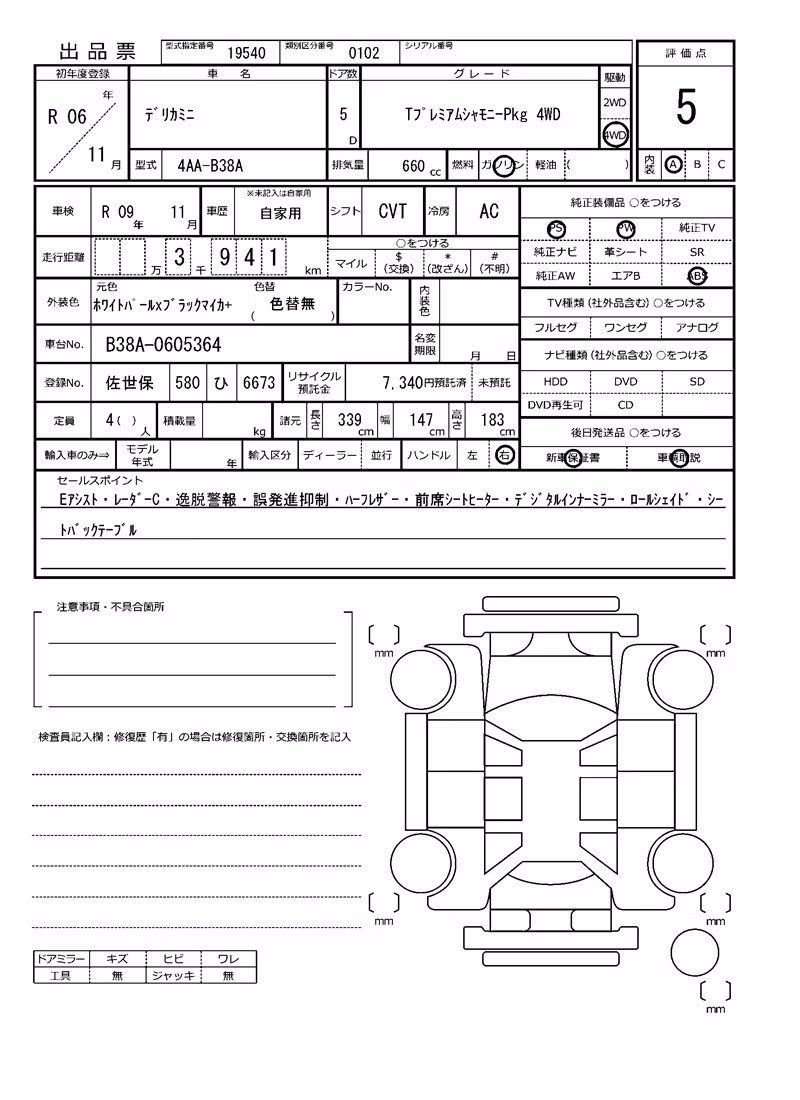 出品票 型式指定番号 19540 類別区分番号 0102 シリアル番号
評価点
5
初年度登録 車名 ドア数 グレード 駆動
R 06 年 11 月 デリカミニ 5 D TプレミアムシャモニーPkg 4WD 2WD 4WD
型式 4AA-B38A 排気量 660 cc 燃料 ガソリン 軽油 ( )
内装 A B C
車検 R 09 年 11 月 車歴 ※未記入は自家用 自家用 シフト CVT 冷房 AC
走行距離 万 3 千 9 4 1 km
○をつける
マイル $(交換) *(改ざん) #(不明)
外装色 元色 ホワイトパールxブラックマイカ+ 色替 ( 色替無 ) カラーNo. 内装色
車台No. B38A-0605364 名変期限 月 日
登録No. 佐世保 580 ひ 6673 リサイクル預託金 7,340円預託済 未預託
定員 4( )人 積載量 kg 諸元 長さ 339 cm 幅 147 cm 高さ 183 cm
輸入車のみ⇒ モデル年式 年 輸入区分 ディーラー 並行 ハンドル 左 右
純正装備品 ○をつける
PS PW 純正TV
純正ナビ 革シート SR
純正AW エアB ABS
TV種類(社外品含む)○をつける
フルセグ ワンセグ アナログ
ナビ種類(社外品含む)○をつける
HDD DVD SD
DVD再生可 CD
後日発送品 ○をつける
新車保証書 車輌取説
セールスポイント
Eアシスト・レーダーC・逸脱警報・誤発進抑制・ハーフレザー・前席シートヒーター・デジタルインナーミラー・ロールシェイド・シー
トバックテーブル
注意事項・不具合箇所
検査員記入欄：修復歴「有」の場合は修復箇所・交換箇所を記入
ドアミラー キズ ヒビ ワレ
工具 無 ジャッキ 無
mm
mm
mm
mm
mm